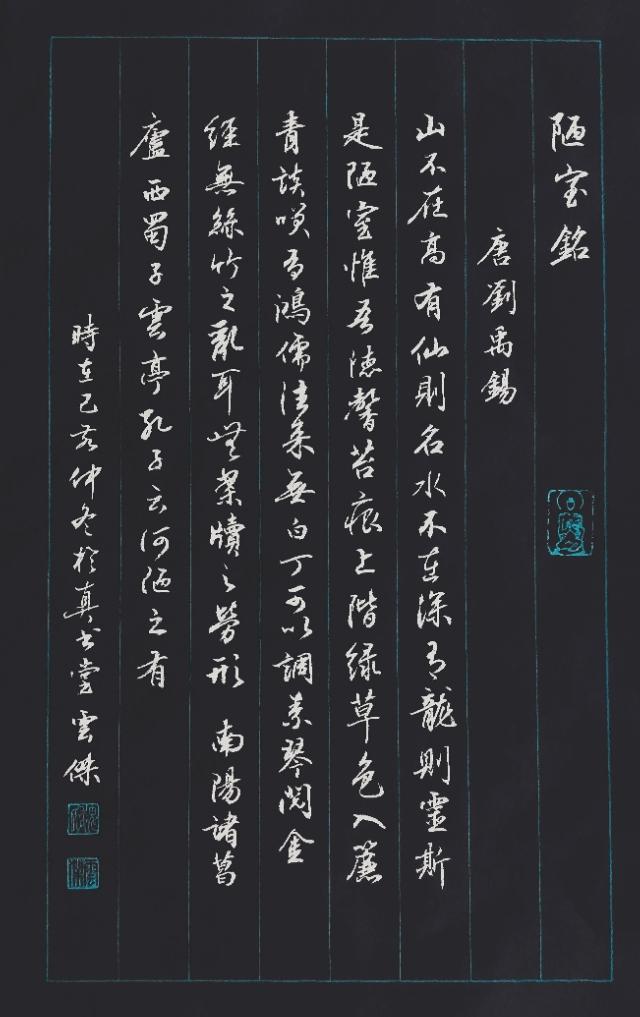 陋室銘
唐劉禹錫
山不在高有仙則名水不在深有龍則靈斯
是陋室惟吾德馨苔痕上階绿草色入簾
青談咲有鴻儒往來無白丁可以調素琴閱金
經無絲竹之亂耳無案牘之勞形南陽諸葛
廬西蜀子雲亭孔子云何陋之有
時在己亥仲冬於真書堂雲傑